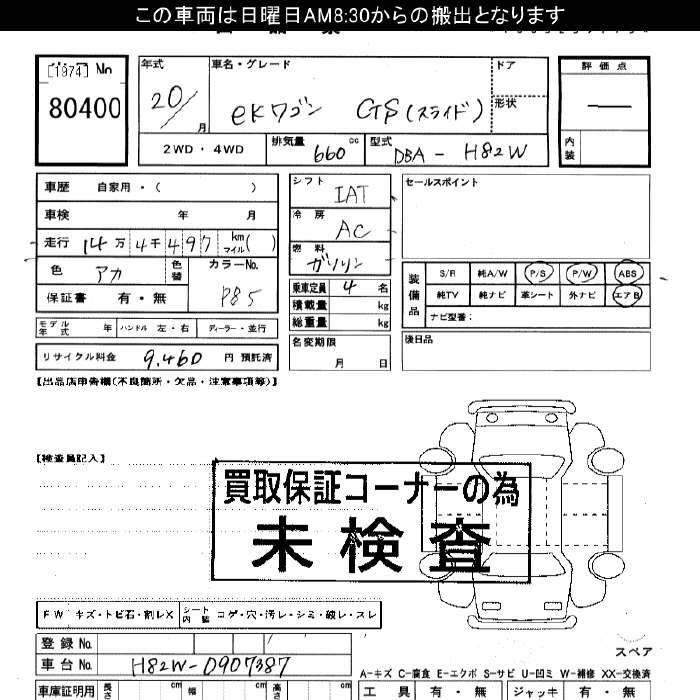 この車両は日曜日AM8:30からの搬出となります
[1974] No
80400
年式 車名・グレード ドア 評価点
20/月 eKワゴン GS(スライド) 形状 ―
2WD・4WD 排気量 660 cc 型式 DBA - H82W 内装
車歴 自家用・( )
シフト IAT
セールスポイント
車検 年 月
冷房 AC
走行 14万4千497 km マイル( )
燃料 ガソリン
色 アカ 色替 カラーNo. P85
保証書 有・無
乗車定員 4 名
積載量 kg
総重量 kg
装備品 S/R 純A/W P/S P/W ABS
純TV 純ナビ 革シート 外ナビ エアB
ナビ型番:
モデル年式 年 ハンドル 左・右 ディーラー・並行
名変期限 月 日
後日品
リサイクル料金 9,460 円 預託済
【出品店申告欄(不良箇所・欠品・注意事項等)】
【検査員記入】
買取保証コーナーの為
未検査
FW キズ・トビ石・割レX シート内装 コゲ・穴・汚レ・シミ・破レ・スレ
登録No.
車台No. H82W-0907387
スペア
A-キズ C-腐食 E-エクボ S-サビ U-凹ミ W-補修 XX-交換済
車庫証明用 長さ cm 幅 cm 高さ cm
工具 有・無 ジャッキ 有・無